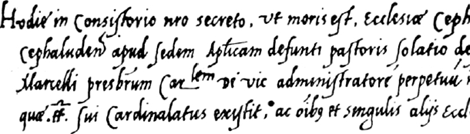 Hodie in Consistorio nro secreto, ut moris est, Ecclesiæ Ceph
Cephaluden apud Sedem Aplicam defunti pastoris solatio de
Marcelli presbrum Car.lem Di vic administratore perpetuu
quæ. sui Cardinalatus existit, ac oibq et singulis alijs Eccl